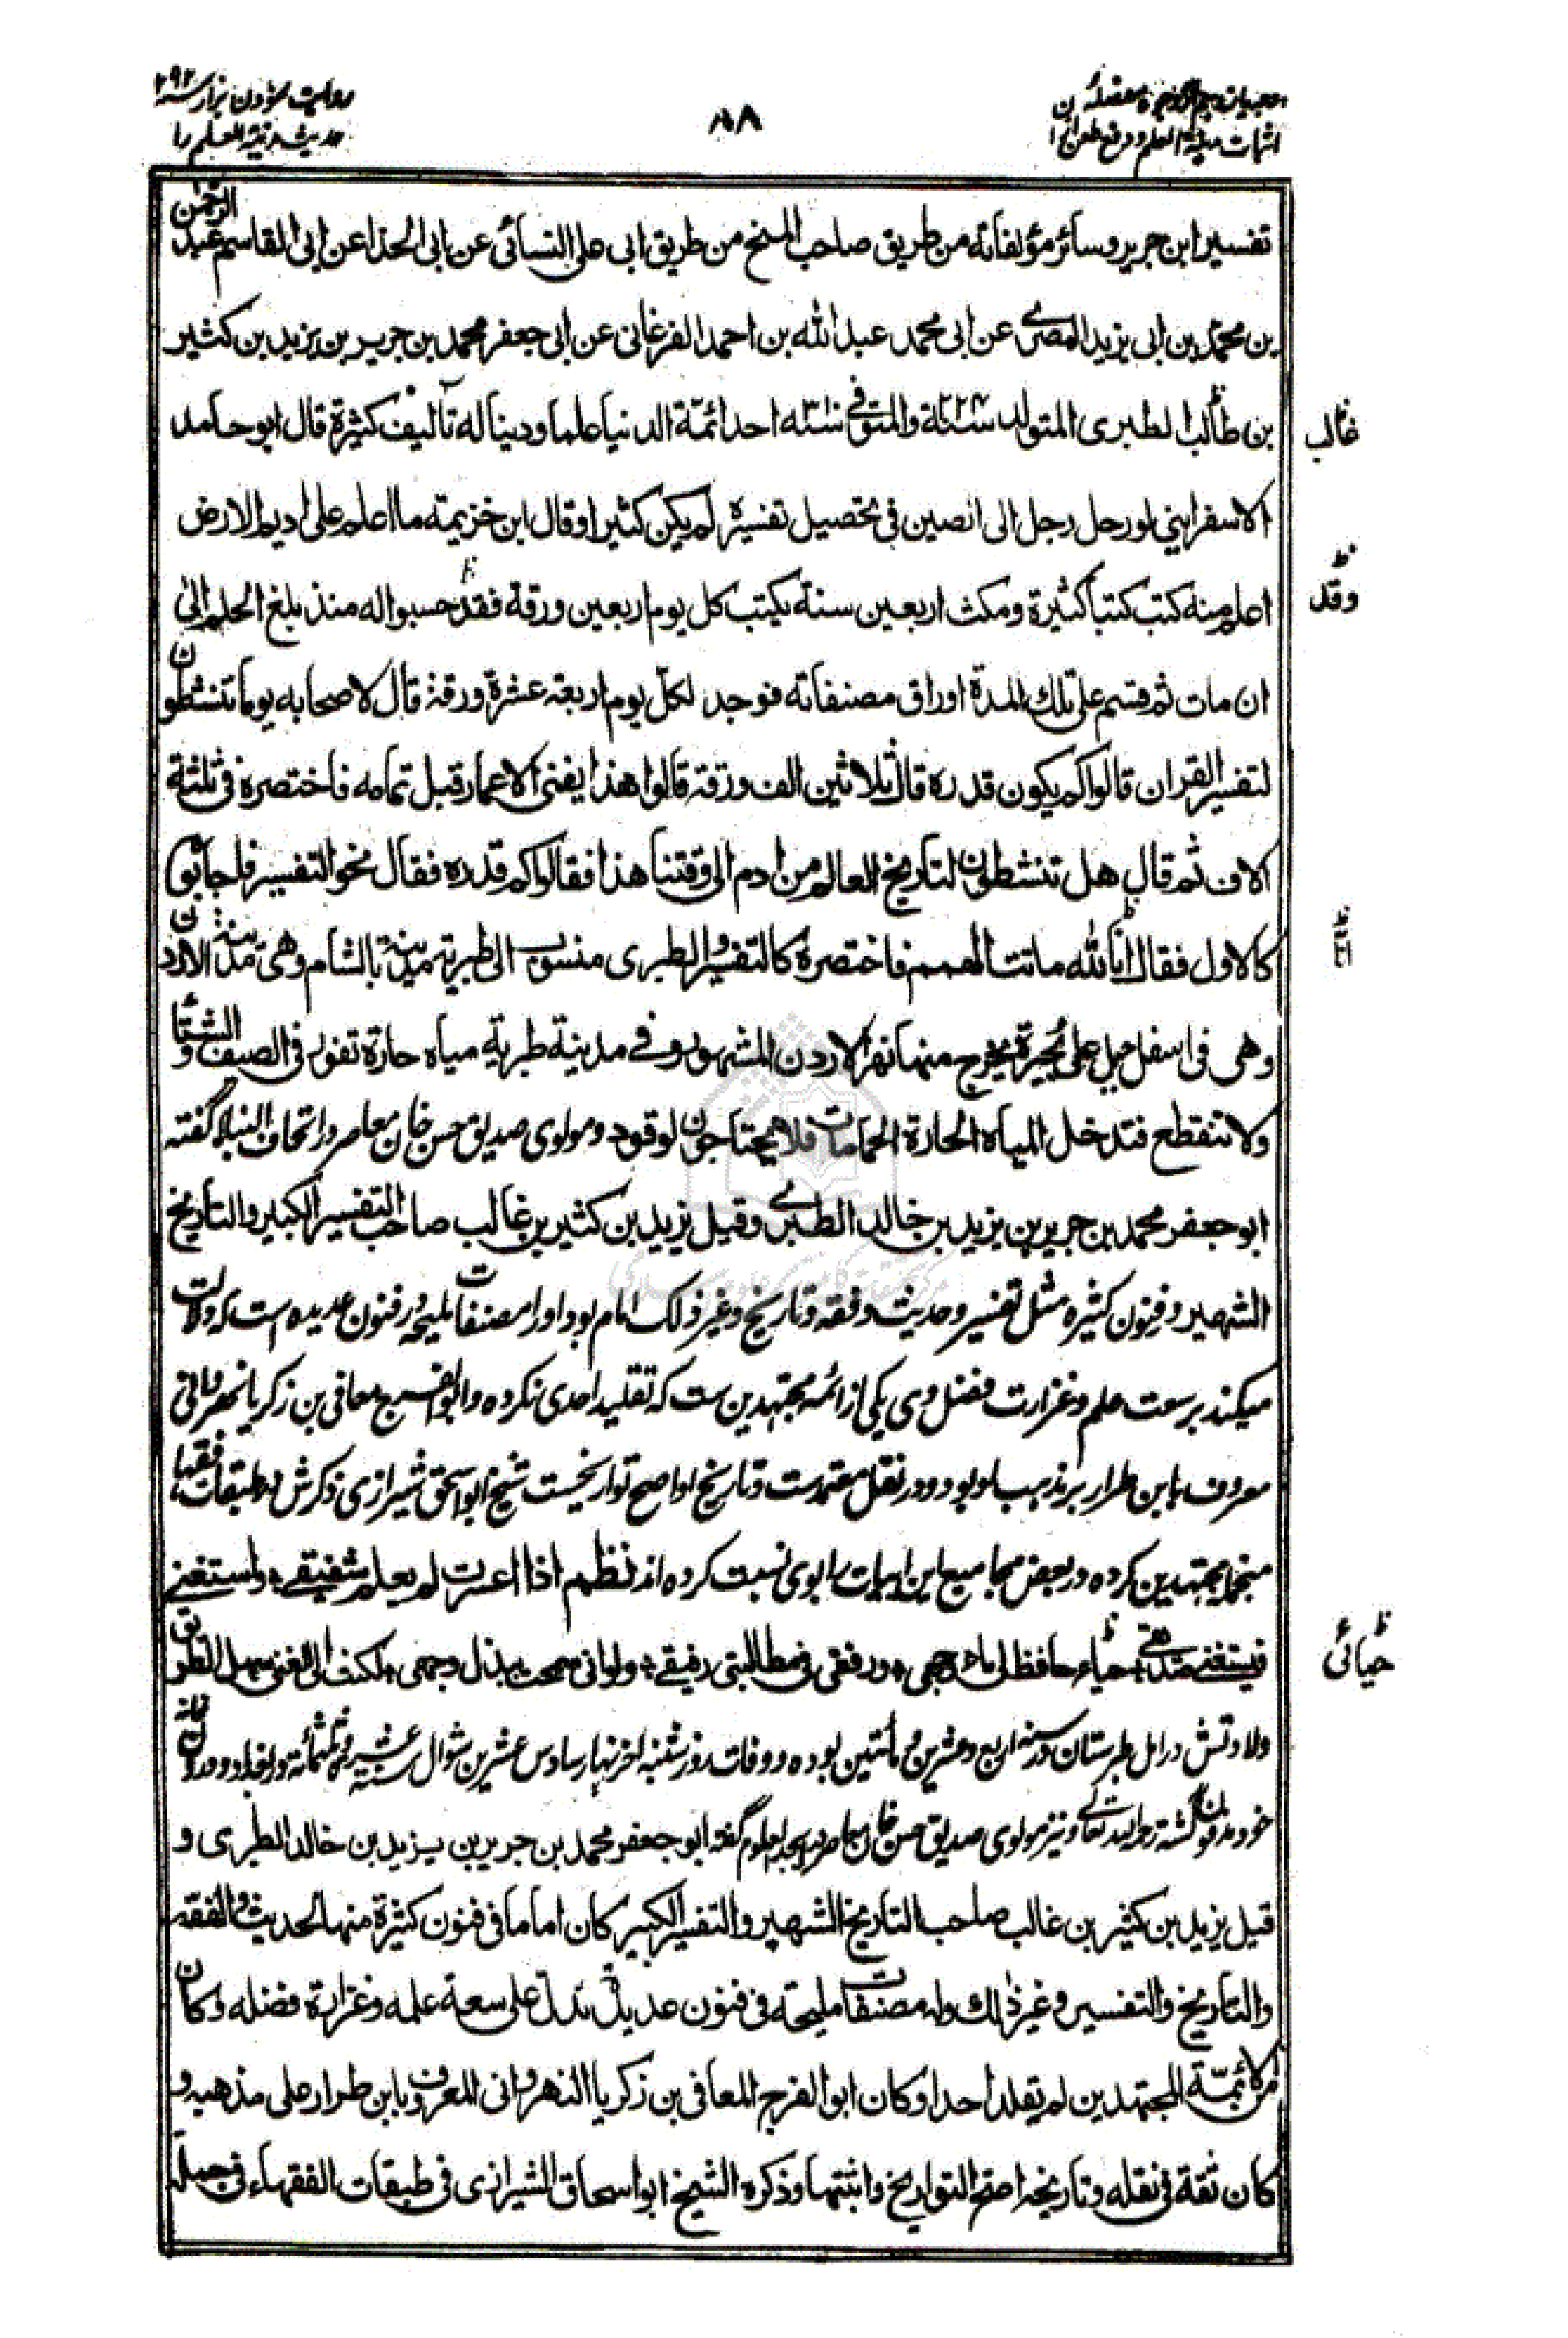 روایت نمودن بزار
۸۸
حدیث مدینة العلم را
اثبات مدینة العلم و دفع طعن
تفسير ابن جرير وسائر مؤلفاته من طريق صاحب المنح من طريق ابى على النسائى عن ابى الحذا عن ابى القاسم عبد الرحمن
بن محمد بن ابى يزيد المصرى عن ابى محمد عبد الله بن احمد الفرغانى عن ابى جعفر محمد بن جرير بن يزيد بن كثير
بن طالب الطبرى المتولد سنة ٢٢٤ والمتوفى سنة ٣١٠ احد ائمّة الدنيا علما ودينا له تآليف كثيرة قال ابو حامد
غالب
الاسفراينى لو رحل رجل الى الصين فى تحصيل تفسيره لم يكن كثيرا وقال ابن خزيمة ما اعلم على اديم الارض
اعلم منه كتب كتبا كثيرة ومكث اربعين سنة يكتب كل يوم اربعين ورقة فقد حسبوا له منذ بلغ الحلم الى
وقد
ان مات ثم قسم على تلك المدة اوراق مصنفاته فوجد لكل يوم اربعة عشرة ورقة قال لاصحابه يوما تنشطون
لتفسير القران قالوا كم يكون قدره قال ثلاثين الف ورقة قالوا هذا يفنى الاعمار قبل تمامه فاختصره فى ثلثة
الاف ثم قال هل تنشطون لتاريخ العالم من ادم الى وقتنا هذا فقالوا كم قدره فقال نحو التفسير فاجابوه
كالاول فقال انا لله ماتت الهمم فاختصره كالتفسير والطبرى منسوب الى طبرية مدينة بالشام وهى مدينة الاردن
وهى فى اسفل جبل على بحيرة يخرج منها نهر الاردن المشهور وفى مدينة طبرية مياه حارة تفور فى الصيف والشتا
ولا تنقطع فتدخل المياه الحارة الحمامات فلا يحتاجون لوقود ومولوى صديق حسن خان معاصر در اتحاف النبلا گفته
ابو جعفر محمد بن جرير بن يزيد بن خالد الطبرى وقيل يزيد بن كثير بن غالب صاحب التفسير الكبير والتاريخ
الشهير در فنون كثيره مثل تفسير وحديث وفقه وتاريخ وغير ذلك امام بود او را مصنفات مليحه در فنون عديده است كه دلالت
ميكند بر سعت علم وغزارت فضل وى يكى از ائمه مجتهدين ست كه تقليد احدى نكرده وابو الفرج معافى بن زكريا نهروانى
معروف بابن طرار بر مذهب او بود ودر نقل معتمد ست وتاريخ او اصح تواريخ ست شيخ ابو اسحق شيرازى ذكرش در طبقات فقها
منجمله مجتهدين كرده در بعض مجاميع اين ابيات را بوى نسبت كرده اند نظم اذا اعسرت لم يعلم شفيقى واستغنى
فيستغنى صديقى حياء حافظ لى ماء وجهى ورفقى فى مطالبتى رفيقى ولو انى سمحت ببذل وجهى لكنت الى الغنى سهل الطريق
حيائى
ولادتش در امل طبرستان در سنه اربع وعشرين ومأتين بوده ووفات روز شنبه اخر نهار سادس عشرين شوال سنة عشر وثلثمائة در بغداد ودر خانه
خود مدفون گشته رحمه الله تعالى ونيز مولوى صديق حسن خان معاصر در ابجد العلوم گفته ابو جعفر محمد بن جرير بن يزيد بن خالد الطبرى و
قيل يزيد بن كثير بن غالب صاحب التاريخ الشهير والتفسير الكبير كان اماما فى فنون كثيرة منها الحديث والفقه
والتاريخ والتفسير وغير ذلك وله مصنفات مليحة فى فنون عديدة تدل على سعة علمه وغزارة فضله وكان
من الائمّة المجتهدين لم يقلد احدا وكان ابو الفرج المعافى بن زكريا النهروانى المعروف بابن طرار على مذهبه و
كان ثقة فى نقله وتاريخه اصح التواريخ واثبتها وذكره الشيخ ابو اسحاق الشيرازى فى طبقات الفقهاء فى جملة